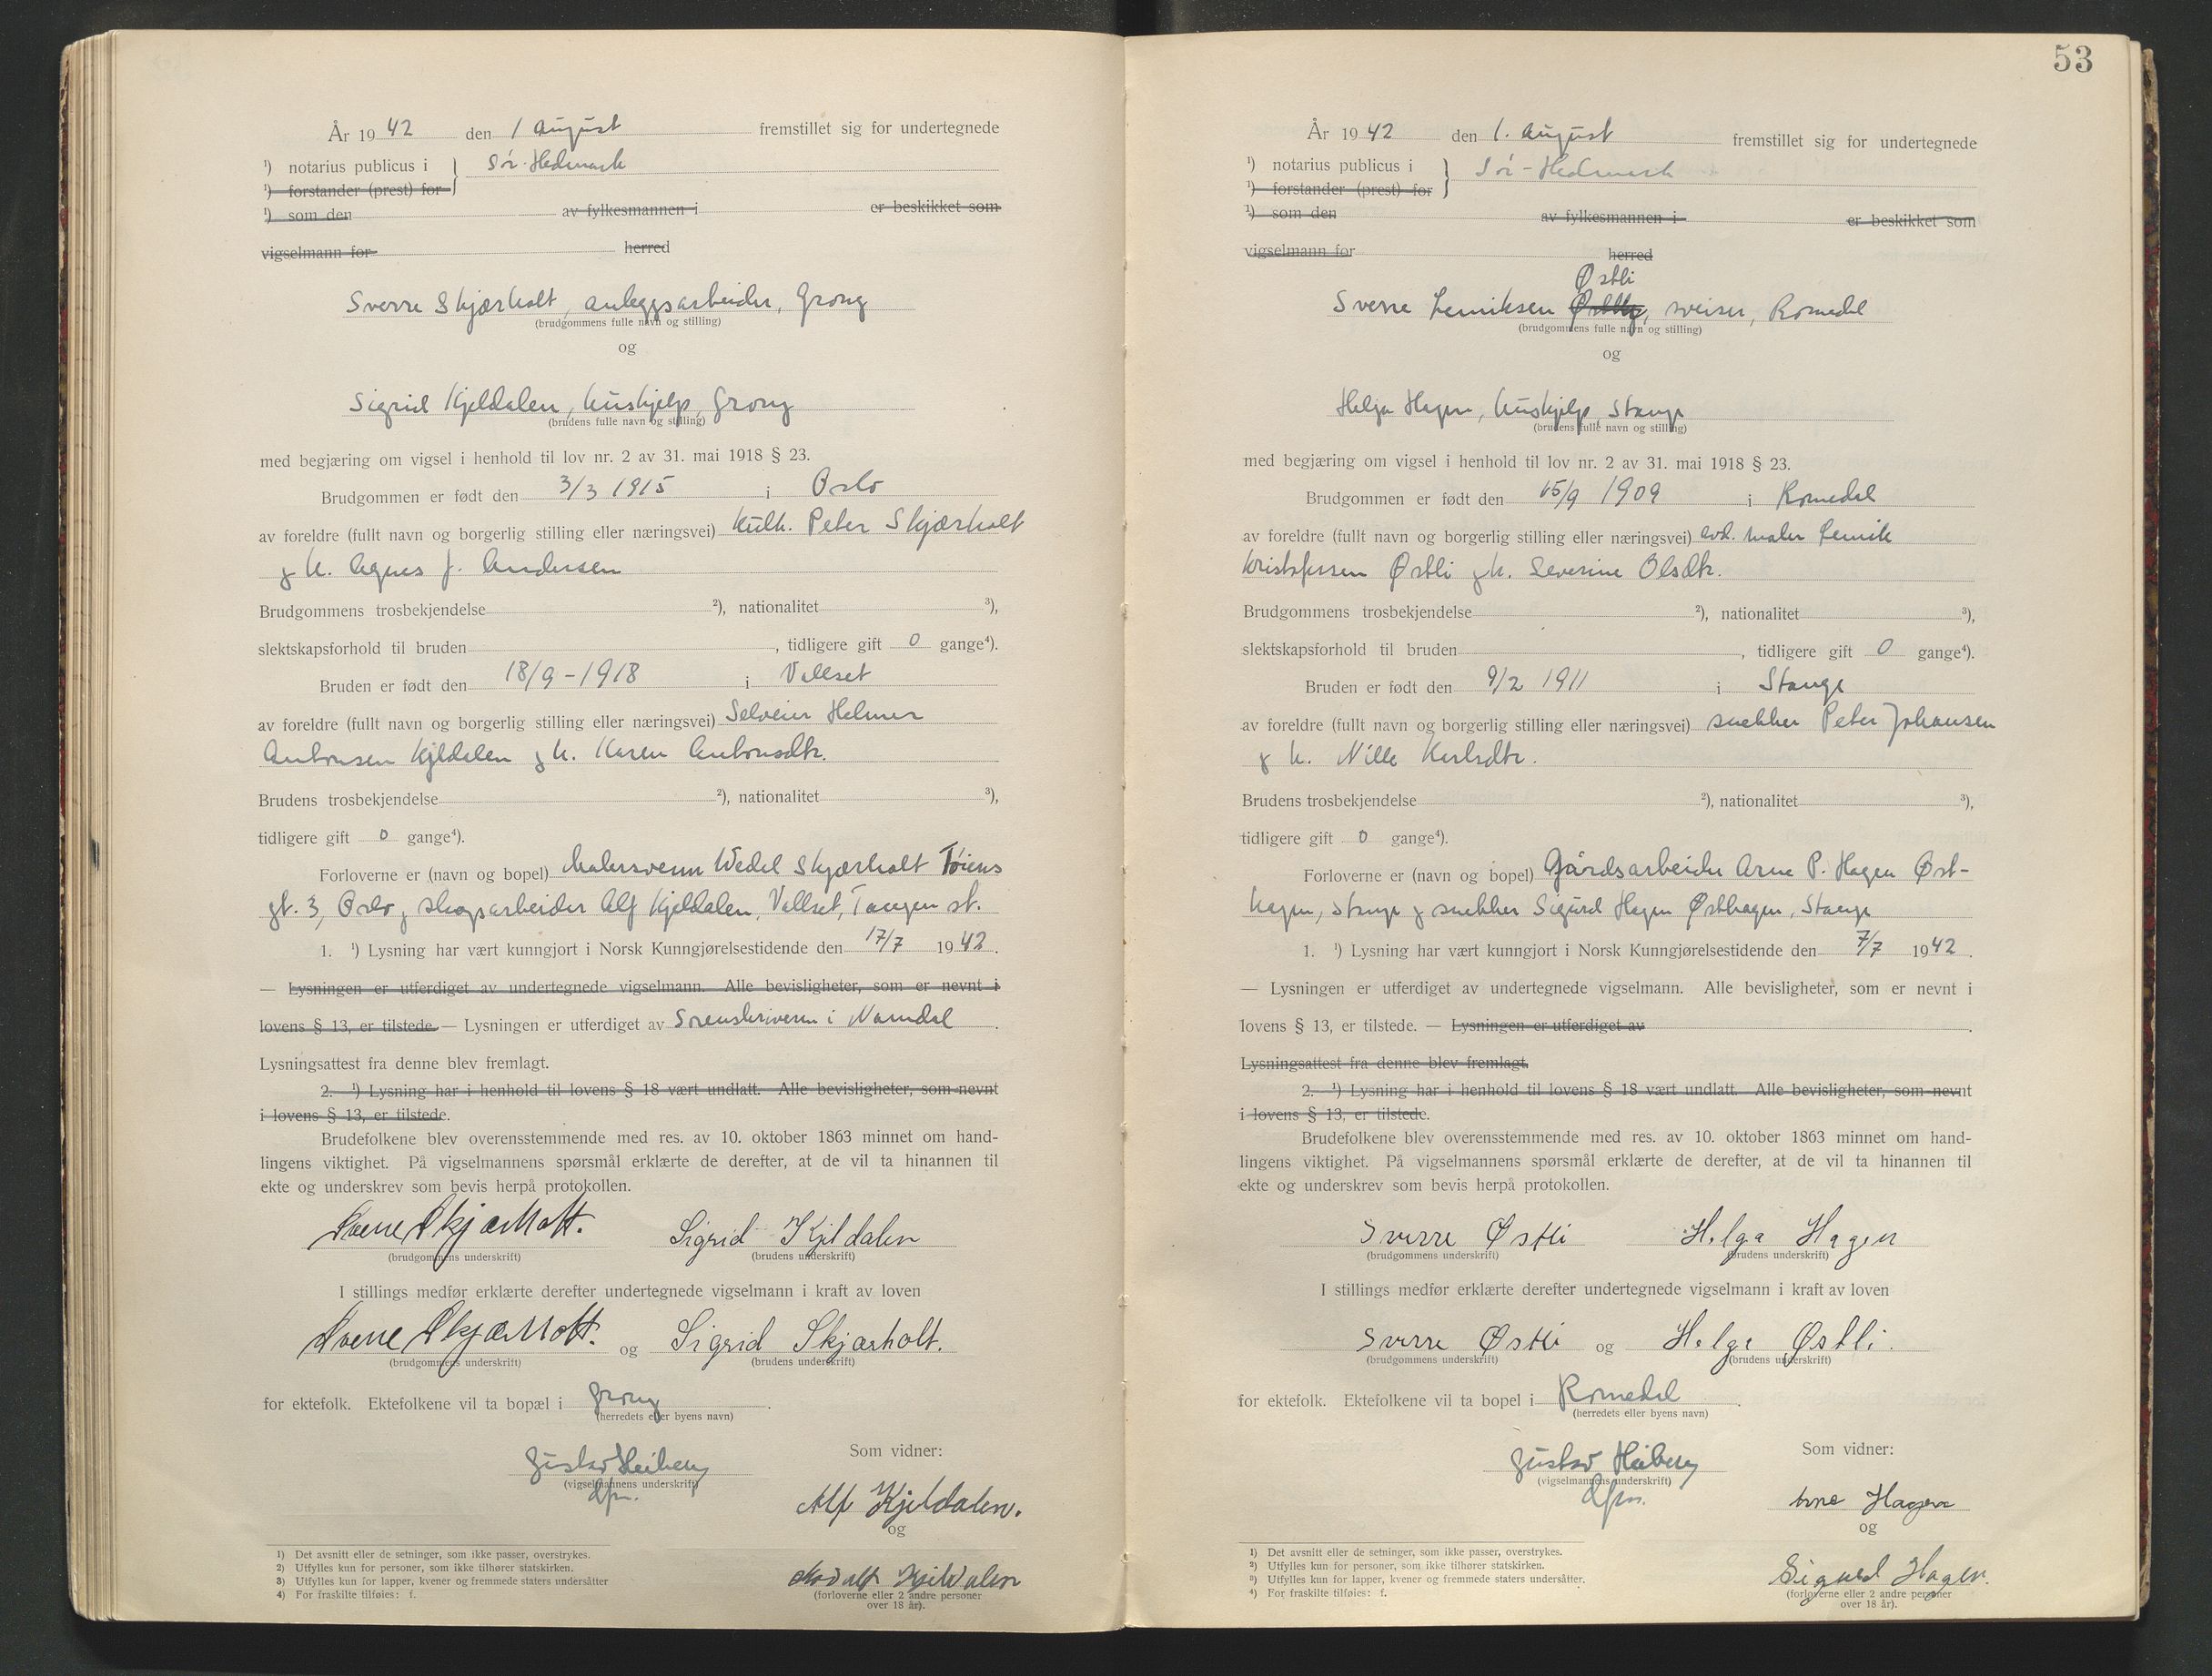 År 1942 den 1 august fremstillet sig for undertegnede
¹) notarius publicus i } Sør-Hedmark
¹) forstander (prest) for
¹) som den av fylkesmannen i er beskikket som
vigselmann for herred
Sverre Skjærholt, anleggsarbeider, Grong
(brudgommens fulle navn og stilling)
og
Sigrid Kjeldalen, hushjelp, Grong
(brudens fulle navn og stilling)
med begjæring om vigsel i henhold til lov nr. 2 av 31. mai 1918 § 23.
Brudgommen er født den 3/3 1915 i Oslo
av foreldre (fullt navn og borgerlig stilling eller næringsvei) Kulh. Peter Skjærholt
og h. Agnes J. Andersen
Brudgommens trosbekjendelse ²), nationalitet ³),
slektskapsforhold til bruden , tidligere gift 0 gange⁴).
Bruden er født den 18/9 - 1918 i Vallset
av foreldre (fullt navn og borgerlig stilling eller næringsvei) Selveier Helmer
Antonsen Kjeldalen og h. Karen Antonsdtr.
Brudens trosbekjendelse ²), nationalitet ³),
tidligere gift 0 gange⁴).
Forloverne er (navn og bopel) Malersvenn Wedel Skjærholt Tøiens
gt. 3, Oslo og skogsarbeider Alf Kjeldalen, Vallset, Tangen st.
1. ¹) Lysning har vært kunngjort i Norsk Kunngjørelsestidende den 17/7 1942.
— Lysningen er utferdiget av undertegnede vigselmann. Alle bevisligheter, som er nevnt i
lovens § 13, er tilstede. — Lysningen er utferdiget av Sorenskriveren i Namdal .
Lysningsattest fra denne blev fremlagt.
2. ¹) Lysning har i henhold til lovens § 18 vært undlatt. Alle bevisligheter, som nevnt
i lovens § 13, er tilstede.
Brudefolkene blev overensstemmende med res. av 10. oktober 1863 minnet om hand-
lingens viktighet. På vigselmannens spørsmål erklærte de derefter, at de vil ta hinannen til
ekte og underskrev som bevis herpå protokollen.
Sverre Skjærholt. Sigrid Kjeldalen
(brudgommens underskrift) (brudens underskrift)
I stillings medfør erklærte derefter undertegnede vigselmann i kraft av loven
Sverre Skjærholt. og Sigrid Skjærholt.
(brudgommens underskrift) (brudens underskrift)
for ektefolk. Ektefolkene vil ta bopæl i Grong .
(herredets eller byens navn)
Som vidner:
Gustav Heiberg
(vigselmannens underskrift)
dfm.
Alf Kjeldalen.
og
Kjeldalen
(forloverne eller 2 andre personer
over 18 år).
1) Det avsnitt eller de setninger, som ikke passer, overstrykes.
2) Utfylles kun for personer, som ikke tilhører statskirken.
3) Utfylles kun for lapper, kvener og fremmede staters undersåtter
4) For fraskilte tilføies: f.
53
År 1942 den 1. august fremstillet sig for undertegnede
¹) notarius publicus i } Sør-Hedmark
¹) forstander (prest) for
¹) som den av fylkesmannen i er beskikket som
vigselmann for herred
Østli
Sverre Lemiksen Østby, sveiser, Romedal
(brudgommens fulle navn og stilling)
og
Helga Hagen, hushjelp, Stange
(brudens fulle navn og stilling)
med begjæring om vigsel i henhold til lov nr. 2 av 31. mai 1918 § 23.
Brudgommen er født den 15/9 1909 i Romedal
av foreldre (fullt navn og borgerlig stilling eller næringsvei) avd. maler Lemik
Kristofersen Østli og h. Severine Olsdtr.
Brudgommens trosbekjendelse ²), nationalitet ³),
slektskapsforhold til bruden , tidligere gift 0 gange⁴).
Bruden er født den 9/2 1911 i Stange
av foreldre (fullt navn og borgerlig stilling eller næringsvei) snekker Peter Johansen
og h. Nille Karlsdtr.
Brudens trosbekjendelse ²), nationalitet ³),
tidligere gift 0 gange⁴).
Forloverne er (navn og bopel) Gårdsarbeider Arne P. Hagen Øst-
hagen, Stange og snekker Sigurd Hagen Østhagen, Stange
1. ¹) Lysning har vært kunngjort i Norsk Kunngjørelsestidende den 7/7 1942.
— Lysningen er utferdiget av undertegnede vigselmann. Alle bevisligheter, som er nevnt i
lovens § 13, er tilstede. — Lysningen er utferdiget av .
Lysningsattest fra denne blev fremlagt.
2. ¹) Lysning har i henhold til lovens § 18 vært undlatt. Alle bevisligheter, som nevnt
i lovens § 13, er tilstede.
Brudefolkene blev overensstemmende med res. av 10. oktober 1863 minnet om hand-
lingens viktighet. På vigselmannens spørsmål erklærte de derefter, at de vil ta hinannen til
ekte og underskrev som bevis herpå protokollen.
Sverre Østli Helga Hagen
(brudgommens underskrift) (brudens underskrift)
I stillings medfør erklærte derefter undertegnede vigselmann i kraft av loven
Sverre Østli og Helga Østli.
(brudgommens underskrift) (brudens underskrift)
for ektefolk. Ektefolkene vil ta bopel i Romedal .
(herredets eller byens navn)
Som vidner:
Gustav Heiberg
(vigselmannens underskrift)
dfm.
Arne Hagen
og
Sigurd Hagen.
(forloverne eller 2 andre personer
over 18 år).
¹) Det avsnitt eller de setninger, som ikke passer, overstrykes.
²) Utfylles kun for personer, som ikke tilhører statskirken.
³) Utfylles kun for lapper, kvener og fremmede staters undersåtter.
⁴) For fraskilte tilføies: f.